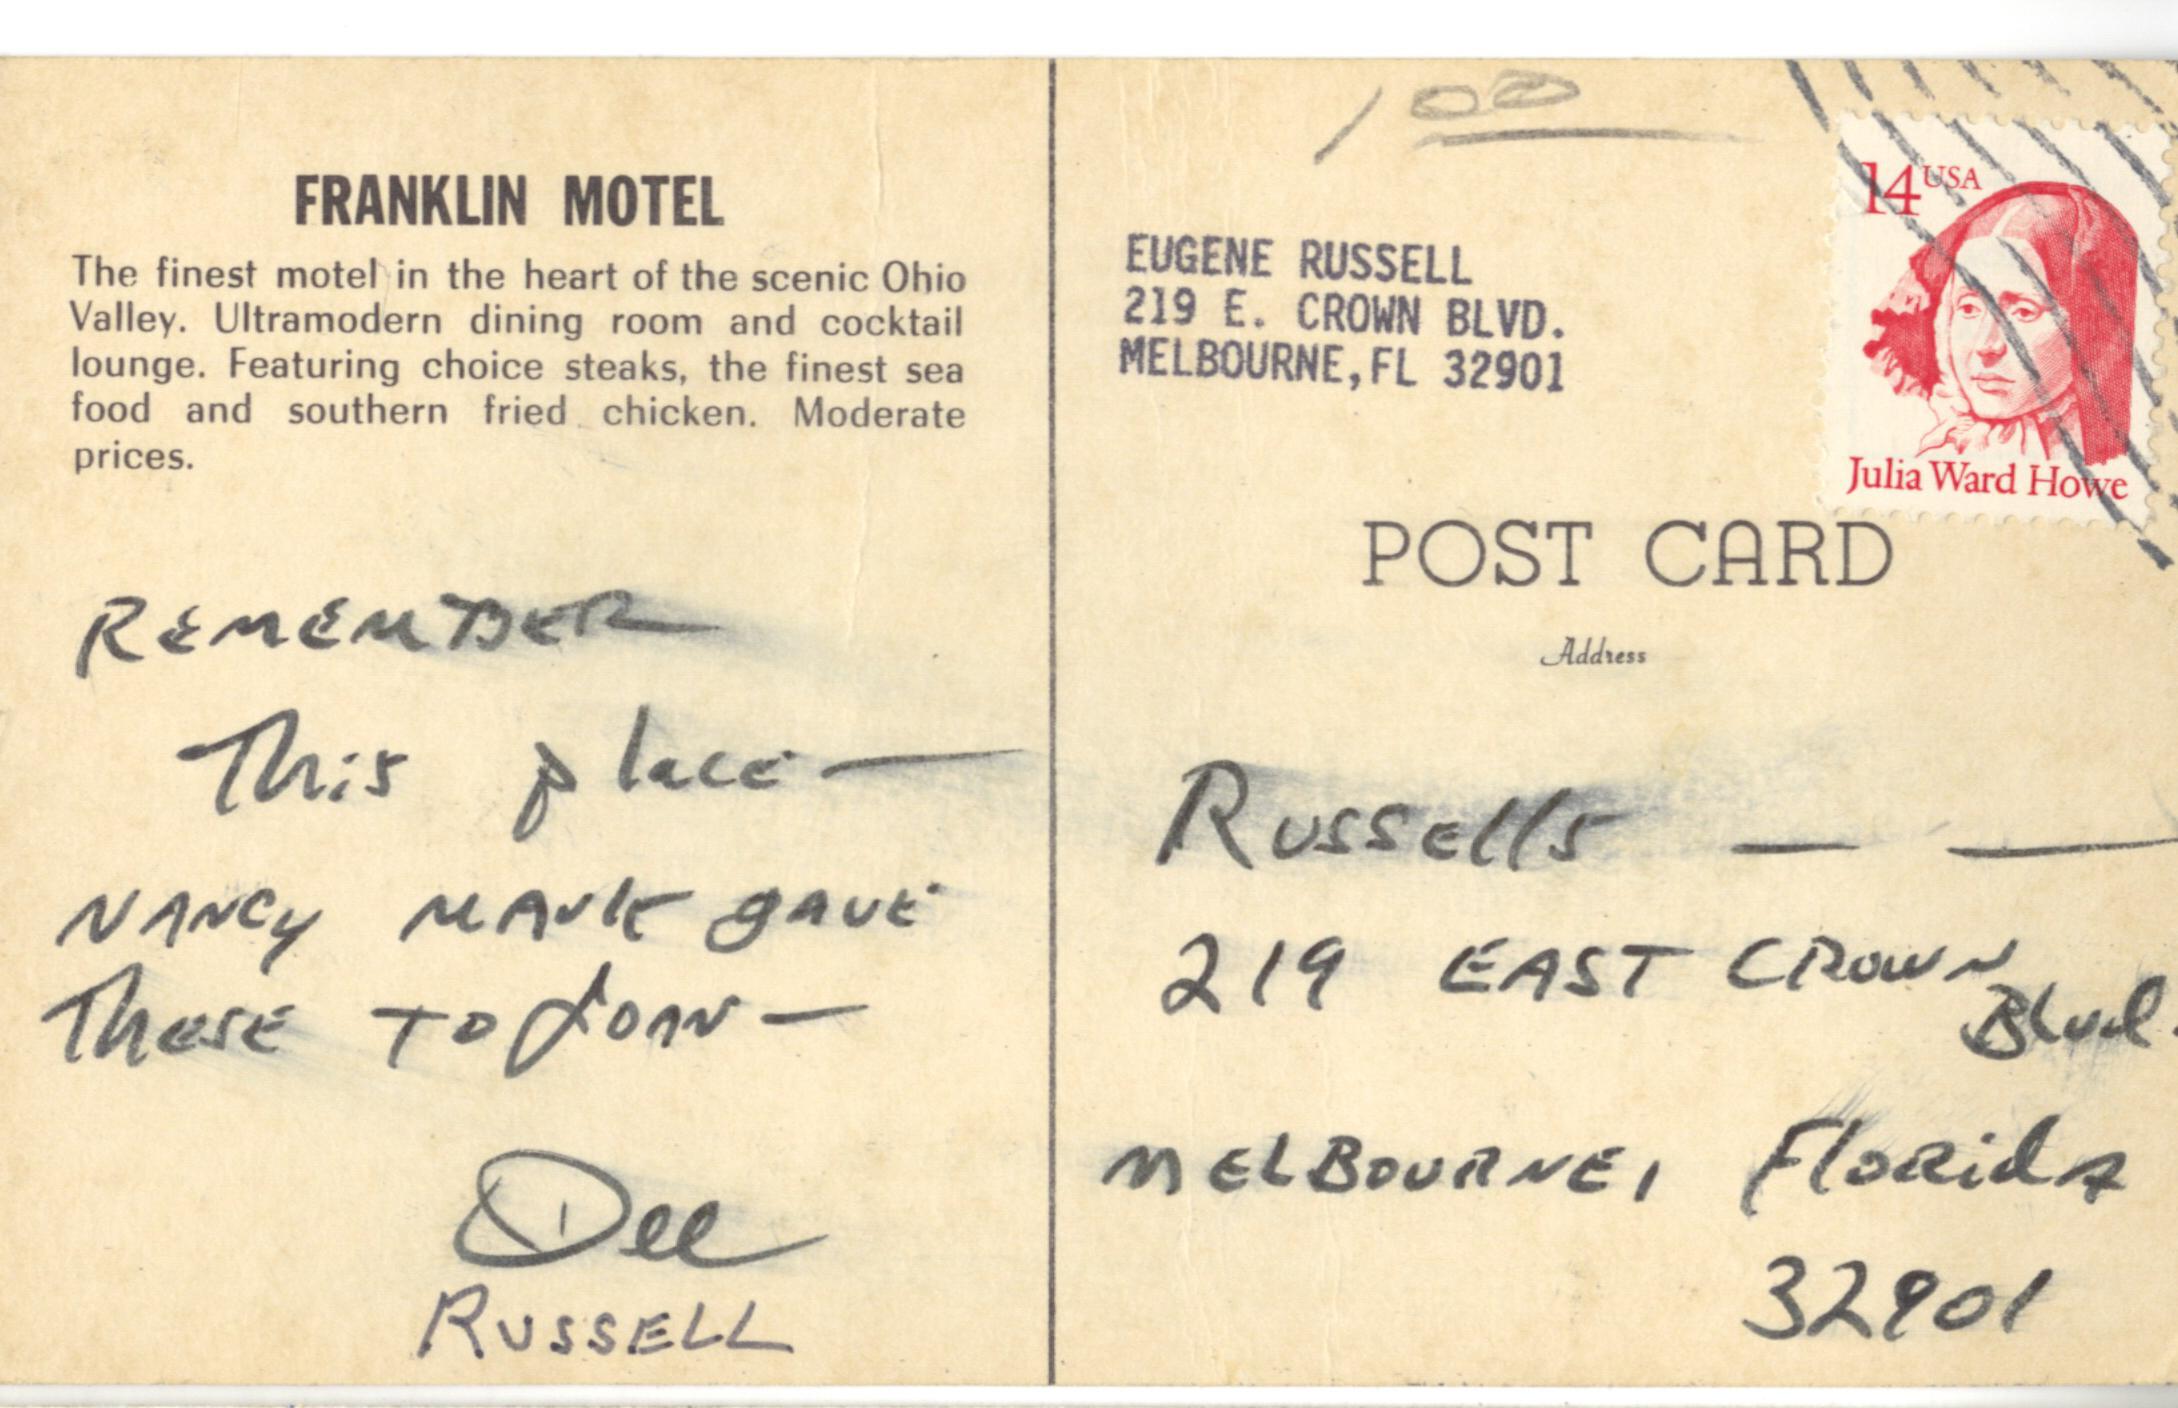 FRANKLIN MOTEL
The finest motel in the heart of the scenic Ohio
Valley. Ultramodern dining room and cocktail
lounge. Featuring choice steaks, the finest sea
food and southern fried chicken. Moderate
prices.
REMEMBER
This place —
NANCY MAVK gave
These TO Joan —
Dee
RUSSELL
1 00
EUGENE RUSSELL
219 E. CROWN BLVD.
MELBOURNE, FL 32901
14 USA
Julia Ward Howe
POST CARD
Address
Russells — —
219 EAST CROWN
Blvd.
MELBOURNE, Florida
32901